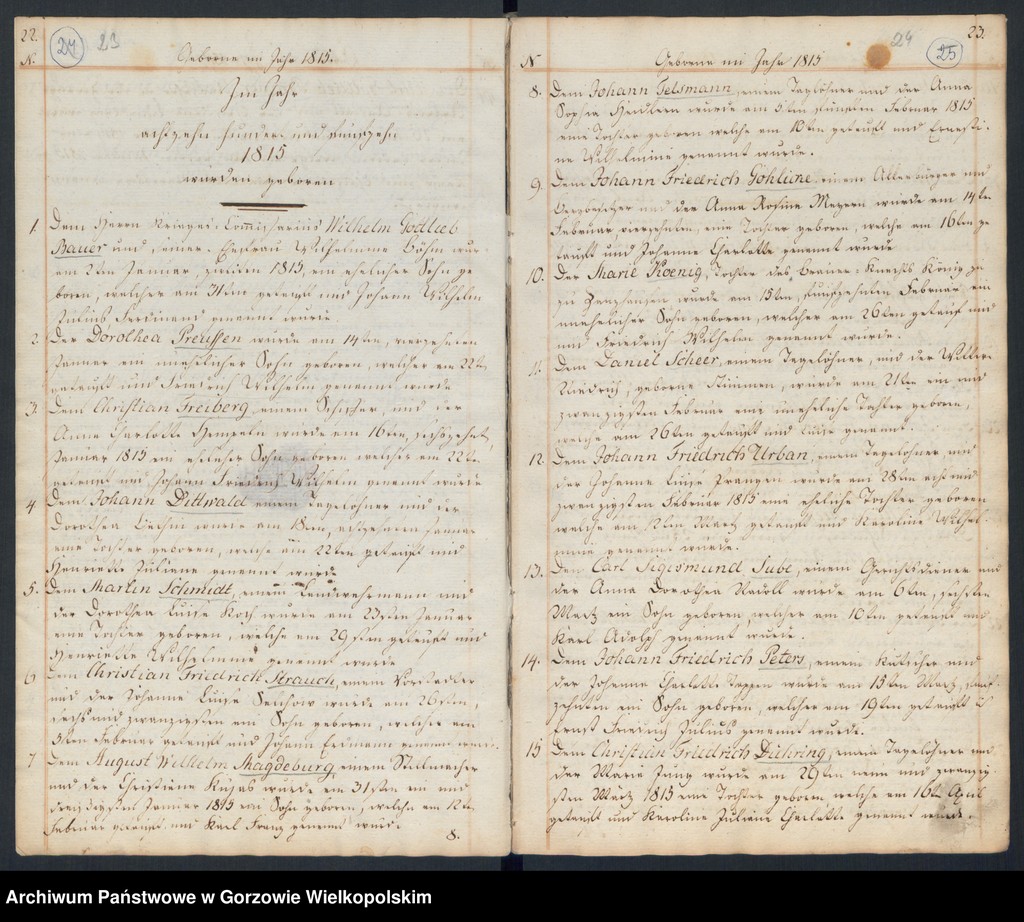 22.
24
23
N.
Geborne im Jahr 1815.
Im Jahr
achtzehn hundert und funfzehn
1815
wurden geboren
1. Dem Herrn Krieges Commissarius Wilhelm Godlieb
Bauer und seiner Ehefrau Wilhelmine Böhm wur-
am 2ten Januar, zweiten 1815, ein ehelicher Sohn ge
boren, welcher am 31ten getauft und Johann Wilhelm
Julius Ferdinand genannt wurde.
2. Der Dorothea Preussen wurde am 14ten, vierzehnten
Januar ein unehelicher Sohn geboren, welcher am 22te.
getauft und Friedrich Wilhelm genannt wurde
3. Dem Christian Freiberg einem Schiffer, und der
Anna Charlotte wurde am 16ten, sechszehnt.
Januar 1815 ein ehelicher Sohn geboren welcher am 22te.
getauft und Johann Friedrich Wilhelm genannt wurde
4. Dem Johann Dittwald einem Tagelöhner und der
Dorothea wurde am 18ten, achtzehnten Januar
eine Tochter geboren, welche am 22ten getauft und
Henriette Juliane genannt wurde
5. Dem Martin Schmidt, einem Landwehrmann und
der Dorothea Luise Koch wurde am 23sten Januar
eine Tochter geboren, welche am 29sten getauft und
Henriette Wilhelmine genannt wurde
6. Dem Christian Friedrich Strauch, einem Vorstädter
und der Johanne Luise wurde am 26sten,
sechs und zwanzigsten ein Sohn geboren, welcher am
5ten Februar getauft und Johann Erdmann genannt wurde.
7. Dem August Wilhelm Magdeburg, einem Stellmacher
und der Christiene Kujas wurde am 31sten ein und
dreissigsten Januar 1815 ein Sohn geboren, welcher am 12te.
Februar getauft und Karl Franz genannt wurde
8.
23.
24
25
N
Geborne im Jahr 1815
8. Dem Johann Felsmann, einem Tagelöhner und der Anna
Sophia wurde am 5ten, fünften Februar 1815
eine Tochter geboren welche am 10ten getauft und Ernesti-
ne Wilhelmine genannt wurde.
9. Dem Johann Friedrich Gohline, einem Ackerbürger und
und der Anna Rosine wurde am 14ten
Februar vierzehnten, eine Tochter geboren, welche am 16ten ge
tauft und Johanne Charlotte genannt wurde
10. Der Marie Koenig, Tochter des Brauer-Knechts König zu
zu wurde am 15ten, funfzehnten Februar ein
unehelicher Sohn geboren, welcher am 26ten getauft und
und Friedrich Wilhelm genannt wurde.
11. Dem Daniel Scheer, einem Tagelöhner, und der
geborne wurde am 21ten ein und
zwanzigsten Februar eine uneheliche Tochter geboren,
welche am 26ten getauft und Luise genannt.
12. Dem Johann Friedrich Urban, einem Tagelöhner und
der Johanne Luise wurde am 28ten acht und
zwanzigsten Februar 1815 eine eheliche Tochter geboren
welche am 12ten Martz getauft und Karoline Wilhel-
mine genannt wurde.
13. Dem Carl Sigismund Sube, einem Gerichtsdiener und
der Anna Dorothea wurde am 6ten, sechsten
Martz ein Sohn geboren, welcher am 10ten getauft und
Karl Adolph genannt wurde.
14. Dem Johann Friedrich Peters, einem Kutscher und
der Johanna Charlotte wurde am 15ten Martz, funf
zehnten ein Sohn geboren, welcher am 19ten getauft u
Ernst Friedrich Julius genannt wurde.
15 Dem Christian Friedrich Diehring, einem Tagelöhner und
der Marie Jung wurde am 29ten neun und zwanzig-
sten Martz 1815 eine Tochter geboren, welche am 16ten April
getauft und Karoline Juliane Charlotte genannt wurde.
Archiwum Państwowe w Gorzowie Wielkopolskim